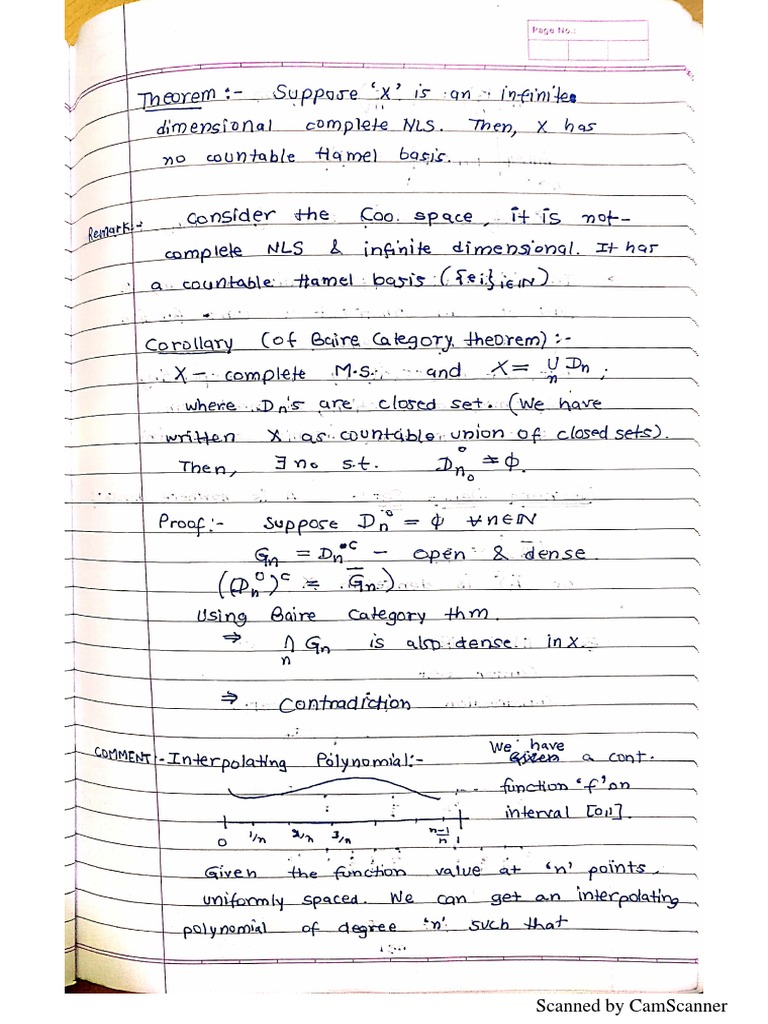 Page No.:
Theorem :- Suppose 'X' is an infinite
dimensional complete NLS. Then, X has
no countable Hamel basis.
Remark:- Consider the C00 space, it is not
complete NLS & infinite dimensional. It has
a countable Hamel basis ({ei}i∈ℕ)
Corollary (of Baire Category theorem) :-
X - complete M.S. and X = ∪n Dn ,
where Dn's are closed set. (We have
written X as countable union of closed sets).
Then, ∃ n0 s.t. D°n0 ≠ ϕ.
Proof :- Suppose Dn° = ϕ ∀n∈ℕ
Gn = Dn^c - open & dense.
(Dn°)^c = G̅n)
Using Baire Category thm.
⇒ ∩n Gn is also dense in X.
⇒ Contradiction
COMMENT :- Interpolating Polynomial :- We have
Given a cont.
function 'f' on
interval [0,1].
0 1/n 2/n 3/n n-1/n 1
Given the function value at 'n' points
uniformly spaced. We can get an interpolating
polynomial of degree 'n' such that
Scanned by CamScanner